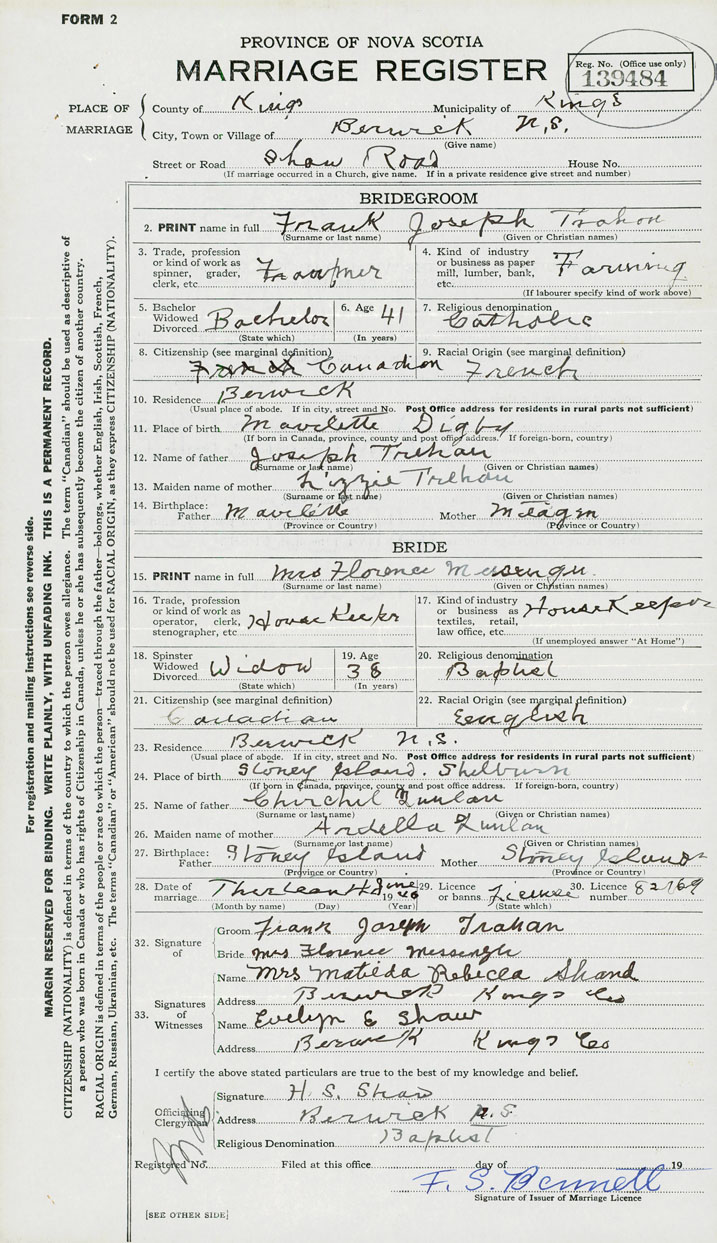 FORM 2
PROVINCE OF NOVA SCOTIA
MARRIAGE REGISTER
Reg. No. (Office use only)
139484
PLACE OF MARRIAGE
County of Kings Municipality of Kings
City, Town or Village of Berwick N.S.
(Give name)
Street or Road Shaw Road House No.
(If marriage occurred in a Church, give name. If in a private residence give street and number)
BRIDEGROOM
2. PRINT name in full Frank Joseph Trahan
(Surname or last name) (Given or Christian names)
3. Trade, profession or kind of work as spinner, grader, clerk, etc.
4. Kind of industry or business as paper mill, lumber, bank, etc. Farming
(If labourer specify kind of work above)
5. Bachelor Widowed Divorced Bachelor
(State which)
6. Age 41
(In years)
7. Religious denomination
Catholic
8. Citizenship (see marginal definition)
Canadian
9. Racial Origin (see marginal definition)
French
10. Residence Berwick
(Usual place of abode. If in city, street and No. Post Office address for residents in rural parts not sufficient)
11. Place of birth Mavelette Digby
(If born in Canada, province, county and post office address. If foreign-born, country)
12. Name of father Joseph Trehan
(Surname or last name) (Given or Christian names)
13. Maiden name of mother Lizzie Trehan
(Surname or last name) (Given or Christian names)
14. Birthplace: Father Mavelette Mother
(Province or Country) (Province or Country)
BRIDE
15. PRINT name in full Mrs Florence Messenger
(Surname or last name) (Given or Christian names)
16. Trade, profession or kind of work as operator, clerk, stenographer, etc. House Keeker
17. Kind of industry or business as textiles, retail, law office, etc. House Keeper
(If unemployed answer "At Home")
18. Spinster Widowed Divorced Widow
(State which)
19. Age 38
(In years)
20. Religious denomination
Baptist
21. Citizenship (see marginal definition)
Canadian
22. Racial Origin (see marginal definition)
English
23. Residence Berwick N.S.
(Usual place of abode. If in city, street and No. Post Office address for residents in rural parts not sufficient)
24. Place of birth Stoney Island. Shelburn
(If born in Canada, province, county and post office address. If foreign-born, country)
25. Name of father Churchil Qunlan
(Surname or last name) (Given or Christian names)
26. Maiden name of mother Ardella Qunlan
(Surname or last name) (Given or Christian names)
27. Birthplace: Father Stoney Island Mother Stoney Island
(Province or Country) (Province or Country)
28. Date of marriage June 1946
(Month by name) (Day) (Year)
29. Licence or banns License
(State which)
30. Licence number 82769
32. Signature of
Groom Frank Joseph Trahan
Bride Mrs Florence Messengh
33. Signatures of Witnesses
Name Mrs Matilda Rebecca Shand
Address Berwick Kings Co
Name Evelyn E Shaw
Address Berwick Kings Co
I certify the above stated particulars are true to the best of my knowledge and belief.
Officiating Clergyman
Signature H. S. Shaw
Address Berwick N.S.
Religious Denomination Baptist
Registered No. Filed at this office day of 19
F. S. Bennell
Signature of Issuer of Marriage Licence
[SEE OTHER SIDE]
For registration and mailing instructions see reverse side.
MARGIN RESERVED FOR BINDING. WRITE PLAINLY, WITH UNFADING INK. THIS IS A PERMANENT RECORD.
CITIZENSHIP (NATIONALITY) is defined in terms of the country to which the person owes allegiance. The term "Canadian" should be used as descriptive of
a person who was born in Canada or who has rights of Citizenship in Canada, unless he or she has subsequently become the citizen of another country.
RACIAL ORIGIN is defined in terms of the people or race to which the person—traced through the father—belongs, whether English, Irish, Scottish, French,
German, Russian, Ukrainian, etc. The terms "Canadian" or "American" should not be used for RACIAL ORIGIN, as they express CITIZENSHIP (NATIONALITY).